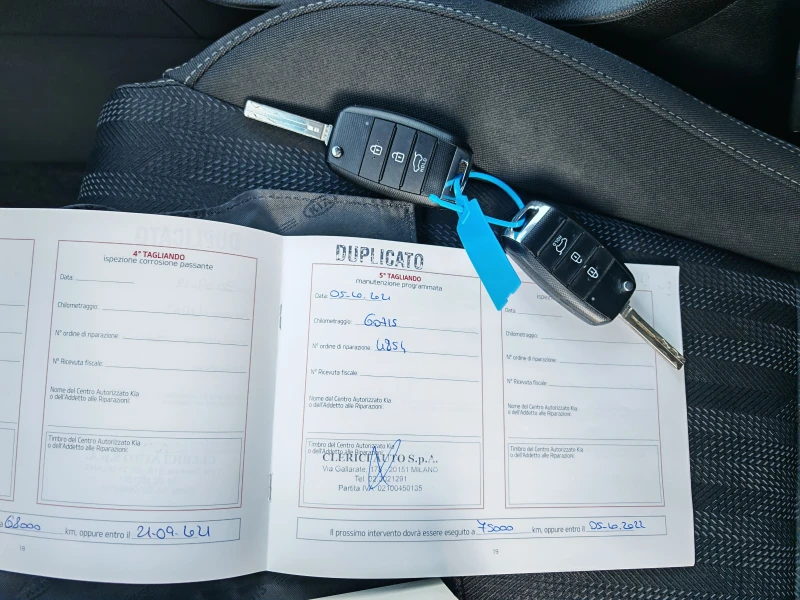 4° TAGLIANDO
ispezione corrosione passante
Data:
Chilometraggio:
N° ordine di riparazione:
N° Ricevuta fiscale:
Nome del Centro Autorizzato Kia
o dell'Addetto alle Riparazioni:
Timbro del Centro Autorizzato Kia
o dell'Addetto alle Riparazioni:
68000 km, oppure entro il 21-09-2021
18
DUPLICATO
5° TAGLIANDO
manutenzione programmata
Data: 05-10-2021
Chilometraggio: 60715
N° ordine di riparazione: 4854
N° Ricevuta fiscale:
Nome del Centro Autorizzato Kia
o dell'Addetto alle Riparazioni:
Timbro del Centro Autorizzato Kia
o dell'Addetto alle Riparazioni:
CLERICI AUTO S.p.A.
Via Gallarate, 20151 MILANO
Tel. 02.3021291
Partita IVA 02100450125
Il prossimo intervento dovrà essere eseguito a 75000 km, oppure entro il 05-10-2022
19
Chilometraggio:
N° ordine di riparazione:
N° Ricevuta fiscale:
Nome del Centro Autorizzato Kia
o dell'Addetto alle Riparazioni:
Timbro del Centro Autorizzato Kia
o dell'Addetto alle Riparazioni:
KIA
HOLD
HOLD